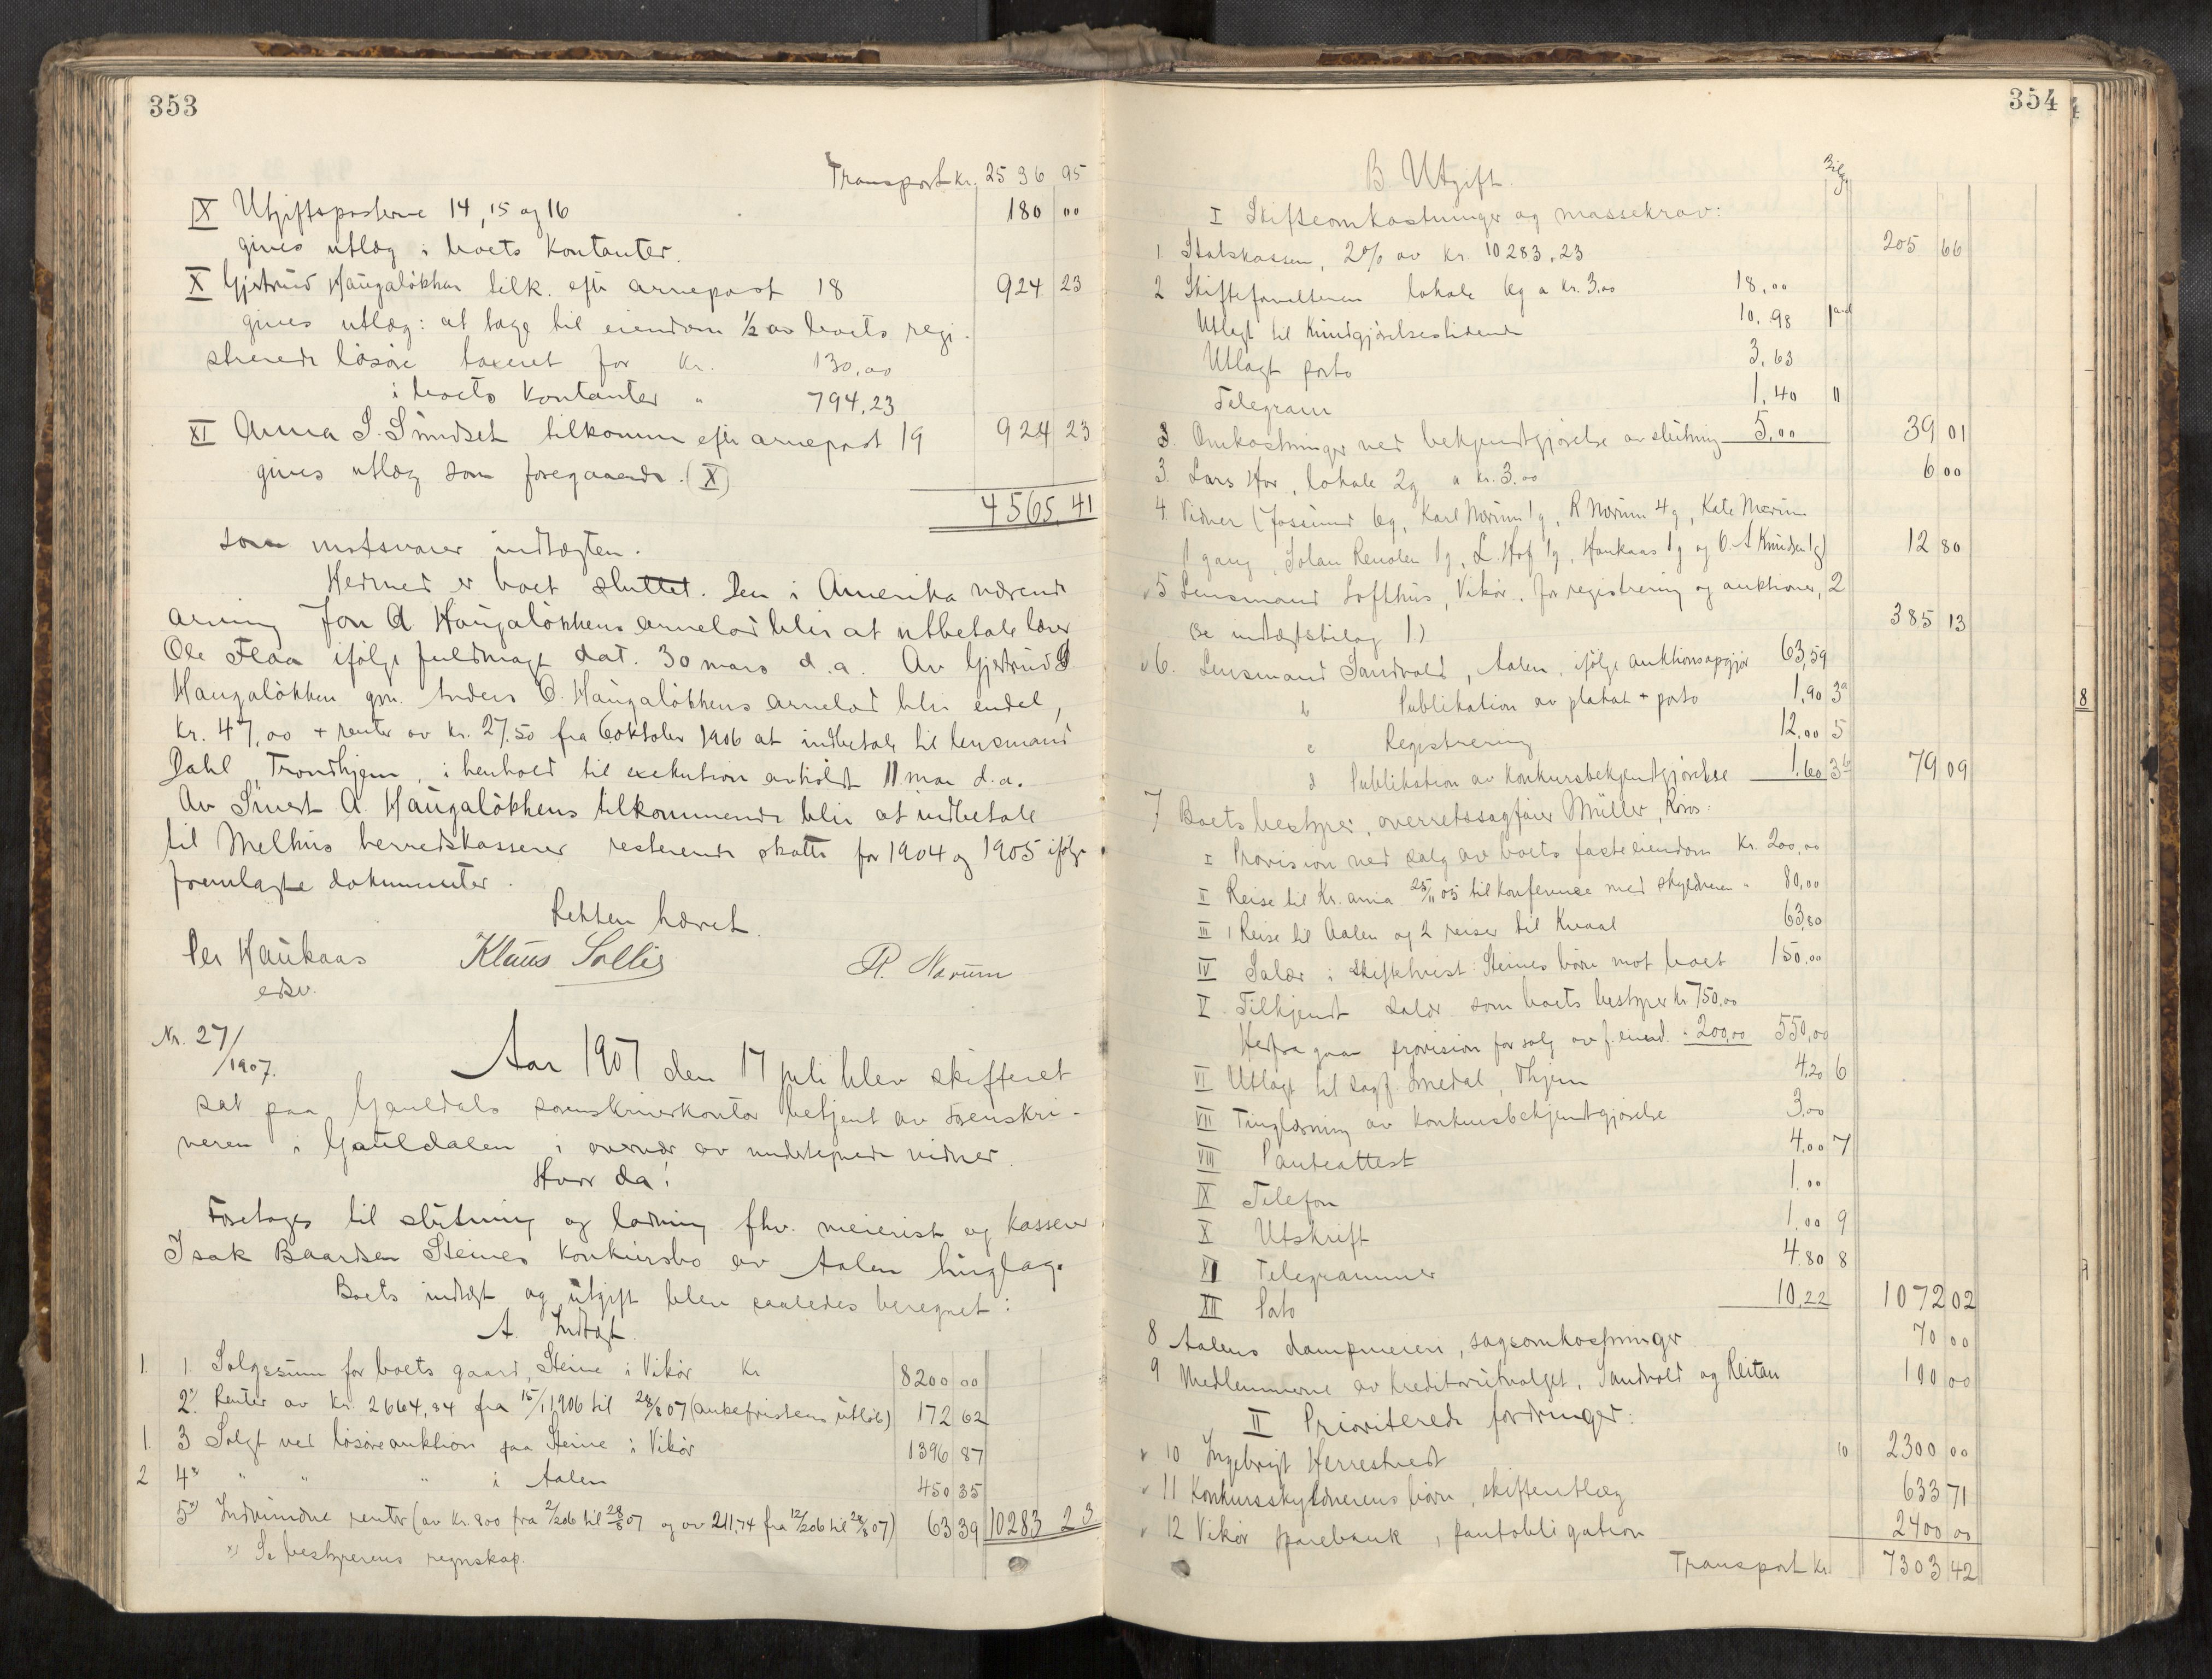 353
Transport kr. 2536 95
IX Utgiftsposterne 14, 15 og 16 180 00
gives utlæg i boets kontanter.
X Gjertrud Haugaløkken tilk. eftr arvepost 18 924 23
gives utlæg: at tage til eiendom 1/2 av boets regi-
strerede løsøre taxeret for kr. 130,00
i boets kontanter " 794,23
XI Anna S. Smidset tilkommer eftr arvepost 19 924 23
gives utlæg som foregaaende (X)
4565,41
som motsvarer indtægten.
Hermed er boet sluttet. Den i Amerika værende
arving Jon A Haugaløkkens arvelod blir at utbetale lærer
Ole Flaa ifølge fuldmagt dat. 30 mars d.a. Av Gjertrud
Haugaløkken gm. Anders O. Haugaløkkens arvelod blir endel,
kr. 47,00 + renter av kr. 27,50 fra 6 oktober 1906 at indbetale til lensmand
Dahl, Trondhjem, i henhold til exekution avholdt 11 mai d.a.
Av Sivert A. Haugaløkkens tilkommende blir at indbetale
til Melhus herredskasserer resterende skatter for 1904 og 1905 ifølge
fremlagte dokumenter.
Retten hævet.
Per Haukaas Klaus Sollis R. Nærum
edsv.
Nr. 27/
/1907.
Aar 1907 den 17 juli blev skifteret
sat paa Gauldals sorenskriverkontor betjent av sorenskri-
veren i Gauldalen i overvær av undertegnede vidner.
Hvor da:
Foretoges til slutning og lodning fhv. meierist og kasserer
Isak Baardsen Steines konkursbo av Aalen tinglag.
Boets indtægt og utgift blev saaledes beregnet:
A. Indtægt.
1. 1. Salgssum for boets gaard, Steine i Vikør kr 8200 00
2x) Renter av kr. 2664,84 fra 15/1 1906 til 28/8 07 (ankefristens utløb) 172 62
1. 3 Solgt ved løsøreauktion paa Steine i Vikør 1396 87
2 4x) " " " i Aalen 450 35
5x) Indvundne renter (av kr. 800 fra 2/2 06 til 28/8 07 og av 211,74 fra 12/2 06 til 28/8 07) 63 39 10283 23
x) Se bestyrerens regnskap.
354
B. Utgift. Bilag
I Skifteomkostninger og massekrav:
1 Statskassen, 2% av kr. 10283,23 205 66
2 Skifteforvalteren lokale 6g a kr. 3,00 18,00
Utlagt til Kundgjørelsestidende 10,98 1a-d
Utlagt porto 3,63
Telegram 1,40 11
Omkostninger ved bekjendtgjørelse av slutning 5,00 39 01
3. Lars Hov, lokale 2g a kr. 3,00 6 00
4. Vidner (Jossund 6g, Karl Nærum 1g, R Nærum 4g, Kate Nærum
1 gang, Solan Renolen 1g, L. Hof 1g, Haukaas 1g og O. A Knudsen 1g) 12 80
5 Lensmand Lofthus, Vikør, for registrering og auktioner, 2
(se indtægtsbilag 1.) 385 13
6. Lensmand Sandvold, Aalen, ifølge auktionsopgjør 63,59
b Publikation av plakat + porto 1,90 3a
c Registrering 12,00 5
d Publikation av konkursbekjendtgjørelse 1,60 3b 79 09
7 Boets bestyrer, overretssagfører Müller, Røros:
I Provision ved salg av boets faste eiendom kr. 200,00
II Reise til Kr.ania 25/11 05 til konference med skyldneren " 80,00
III 1 Reise til Aalen og 2 reiser til Kvaal 63,80
IV Salær i skiftetvist Steines børn mot boet 150,00
V Tilkjendt salær som boets bestyrer kr 750,00
Herfra gaar provision for salg av f. eiend. " 200,00 550,00
VI Utlagt til sagf. Smedal, Thjem 4,20 6
VII Tinglæsning av konkursbekjendtgjørelse 3,00
VIII Panteattest 4,00 7
IX Telefon 1,00
X Utskrift 1,00 9
XI Telegrammer 4,80 8
XII Porto 10,22 1072 02
8 Aalens dampmeieri, sagsomkostninger 70 00
9 Medlemmerne av kreditorutvalget, Sandvold og Reitan 100 00
II Prioriterede fordringer:
10 Ingebrigt Herrestvedt 10 2300 00
11 Konkursskyldnerens børn, skifteutlæg 633 71
12 Vikør sparebank, pantobligation 2400 00
Transport kr. 7303 42
8